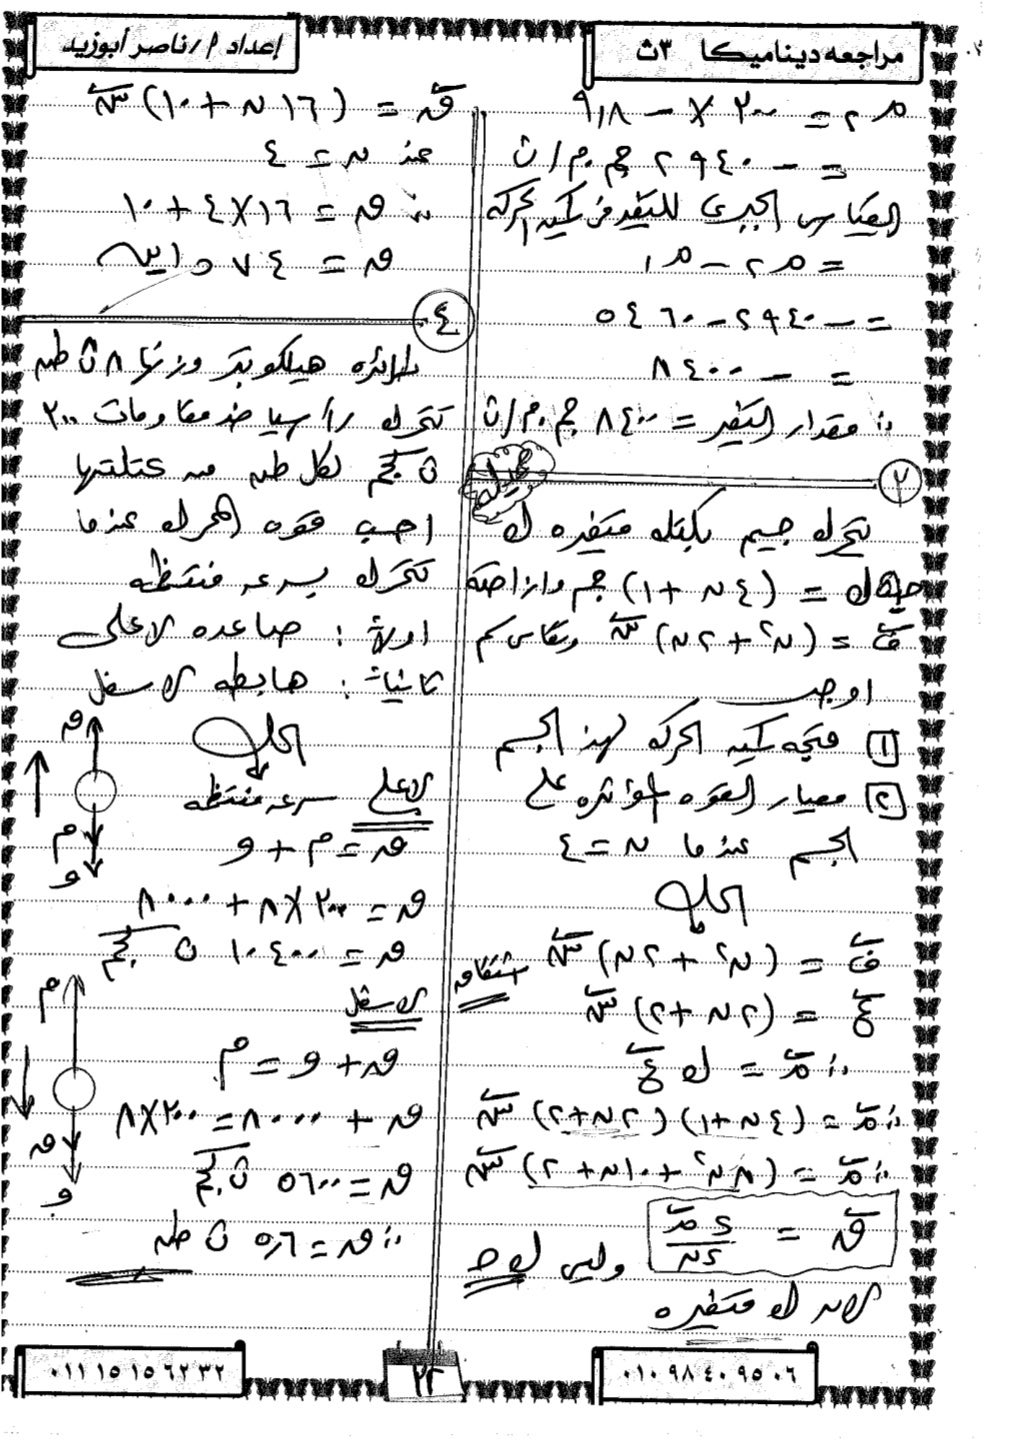 مراجعه ديناميكا ٣ث
إعداد أ/ ناصر أبوزيد
م٢ = ٢٠٠ × − ٩٫٨
= − ٢٩٤٠ جم.م/ث
القياس الجبرى للتغير فى كمية الحركه
= م٢ − م١
= − ٢٩٤٠ − ٥٤٦٠
= − ٨٤٠٠
∴ مقدار التغير = ٨٤٠٠ جم.م/ث
٢
جميله
تتحرك جسيم بكتله متغيره ك
حيث ك = (٤ن + ١) جم وازاحته
ف = (ن٢ + ٢ن) س وتقاس سم
اوجد
١ متجه كميه الحركه لهذ الجسم
٢ معيار القوه المؤثره على
الجسم عندما ن = ٤
الحل
ف = (ن٢ + ٢ن) س اشتقاق
ع = (٢ن + ٢) س
∴ م = ك ع
∴ م = (٤ن + ١) (٢ن + ٢) س
∴ م = (٨ن٢ + ١٠ن + ٢) س
ق = ءم/ءن وليس ك ح
لان ك متغيره
ق = (١٦ن + ١٠) س
عند ن = ٤
∴ ق = ١٦×٤ + ١٠
ق = ٧٤ داين
٤
طائره هيلكوبتر وزنها ٨ ث طن
تتحرك رأسيا ضد مقاومات ٢٠٠
ث كجم لكل طن من كتلتها
احسب قوه المحرك عندما
تتحرك بسرعه منتظمه
اولاً : صاعده لاعلى
ثانياً : هابطه لاسفل
الحل
لاعلى سرعه منتظمه
ق = م + و
ق = ٢٠٠×٨ + ٨٠٠٠
ق = ١٠٤٠٠ ث كجم
ق
م
و
لاسفل
ق + و = م
ق + ٨٠٠٠ = ٢٠٠×٨
ق = ٥٦٠٠ ث كجم
∴ ق = ٥٫٦ ث طن
م
ق
و
٠١٠٩٨٤٠٩٥٠٦
٢٢
٠١١١٥١٥٦٢٣٢